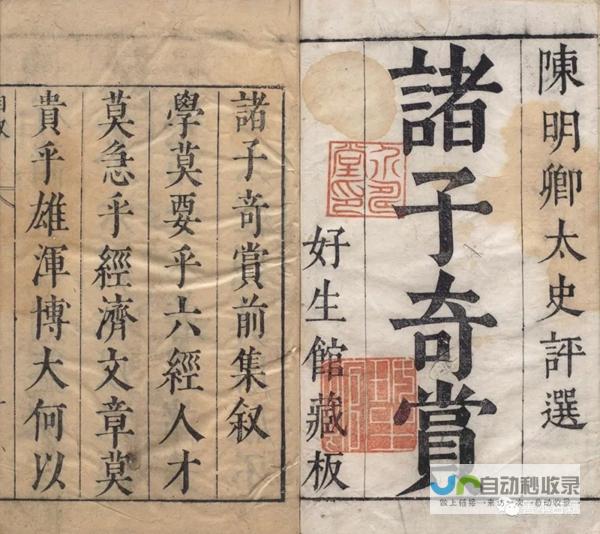 陳明卿太史評選
諸子奇賞
好生館藏板
諸子奇賞前集叙
學莫要乎六經人才
莫急乎經濟文章莫
貴乎雄渾博大何以
自动秒收录
做上链接→来访一次→自动收录